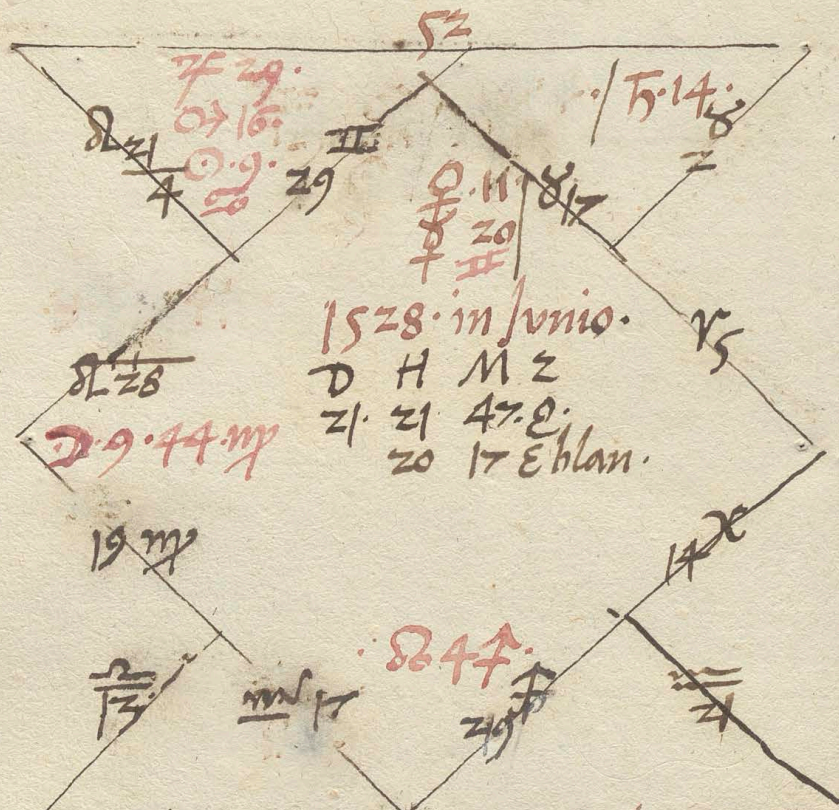 52
♃ 29.
♂ 16.
☉.9.
♋
♄.14.
♉
2
♌ 21
4
29 ♊
♀.11
☿ 20
♊
♉ 17
1528. in Junio.
D H M 2
21. 21 47.
20 17 Eblan.
♈ 5
♌ 28
☽.9.44.♍
19 ♍
♎
13
♏ 17
☊ 4 ♐.
29 ♐
14 ♓
♒
21